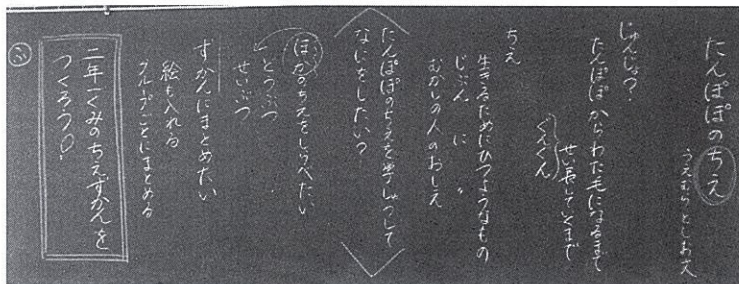 たんぽぽのちえ
うえむらとしお文
じゅんじょ？
たんぽぽからわた毛になるまで
せい長していくまで
ぐんぐん
ちえ
生きるためにひつようなもの
じぶんに
むかしの人のおしえ
たんぽぽのちえを学しゅうして
なにをしたい？
ほかのちえをしらべたい
どうぶつ
せいぶつ
ずかんにまとめたい
絵も入れる
グループごとにまとめる
二年一くみのちえずかんを
つくろう！